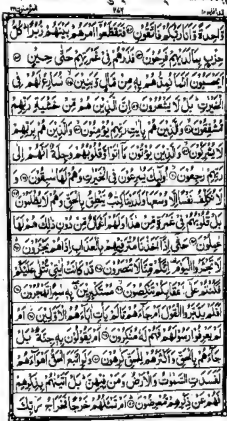 وَّاحِدَةً وَّاَنَا رَبُّكُمْ فَاتَّقُوْنِ ۝ فَتَقَطَّعُوْۤا اَمْرَهُمْ بَيْنَهُمْ زُبُرًا ؕ كُلُّ
حِزْبٍۭ بِمَا لَدَيْهِمْ فَرِحُوْنَ ۝ فَذَرْهُمْ فِيْ غَمْرَتِهِمْ حَتّٰى حِيْنٍ ۝
اَيَحْسَبُوْنَ اَنَّمَا نُمِدُّهُمْ بِهٖ مِنْ مَّالٍ وَّبَنِيْنَ ۝ نُسَارِعُ لَهُمْ فِي
الْخَيْرٰتِ ؕ بَلْ لَّا يَشْعُرُوْنَ ۝ اِنَّ الَّذِيْنَ هُمْ مِّنْ خَشْيَةِ رَبِّهِمْ
مُّشْفِقُوْنَ ۝ وَالَّذِيْنَ هُمْ بِاٰيٰتِ رَبِّهِمْ يُؤْمِنُوْنَ ۝ وَالَّذِيْنَ هُمْ بِرَبِّهِمْ
لَا يُشْرِكُوْنَ ۝ وَالَّذِيْنَ يُؤْتُوْنَ مَاۤ اٰتَوْا وَّقُلُوْبُهُمْ وَجِلَةٌ اَنَّهُمْ اِلٰى
رَبِّهِمْ رٰجِعُوْنَ ۝ اُولٰٓئِكَ يُسٰرِعُوْنَ فِي الْخَيْرٰتِ وَهُمْ لَهَا سٰبِقُوْنَ ۝
وَلَا نُكَلِّفُ نَفْسًا اِلَّا وُسْعَهَا وَلَدَيْنَا كِتٰبٌ يَّنْطِقُ بِالْحَقِّ وَهُمْ لَا يُظْلَمُوْنَ ۝
بَلْ قُلُوْبُهُمْ فِيْ غَمْرَةٍ مِّنْ هٰذَا وَلَهُمْ اَعْمَالٌ مِّنْ دُوْنِ ذٰلِكَ هُمْ لَهَا
عٰمِلُوْنَ ۝ حَتّٰۤى اِذَاۤ اَخَذْنَا مُتْرَفِيْهِمْ بِالْعَذَابِ اِذَا هُمْ يَجْـَٔرُوْنَ ۝
لَا تَجْـَٔرُوا الْيَوْمَ اِنَّكُمْ مِّنَّا لَا تُنْصَرُوْنَ ۝ قَدْ كَانَتْ اٰيٰتِيْ تُتْلٰى عَلَيْكُمْ
فَكُنْتُمْ عَلٰۤى اَعْقَابِكُمْ تَنْكِصُوْنَ ۝ مُسْتَكْبِرِيْنَ بِهٖ سٰمِرًا تَهْجُرُوْنَ ۝
اَفَلَمْ يَدَّبَّرُوا الْقَوْلَ اَمْ جَآءَهُمْ مَّا لَمْ يَاْتِ اٰبَآءَهُمُ الْاَوَّلِيْنَ ۝ اَمْ
لَمْ يَعْرِفُوْا رَسُوْلَهُمْ فَهُمْ لَهٗ مُنْكِرُوْنَ ۝ اَمْ يَقُوْلُوْنَ بِهٖ جِنَّةٌ ؕ بَلْ
جَآءَهُمْ بِالْحَقِّ وَاَكْثَرُهُمْ لِلْحَقِّ كٰرِهُوْنَ ۝ وَلَوِ اتَّبَعَ الْحَقُّ اَهْوَآءَهُمْ
لَفَسَدَتِ السَّمٰوٰتُ وَالْاَرْضُ وَمَنْ فِيْهِنَّ ؕ بَلْ اَتَيْنٰهُمْ بِذِكْرِهِمْ
فَهُمْ عَنْ ذِكْرِهِمْ مُّعْرِضُوْنَ ۝ اَمْ تَسْـَٔلُهُمْ خَرْجًا فَخَرَاجُ رَبِّكَ